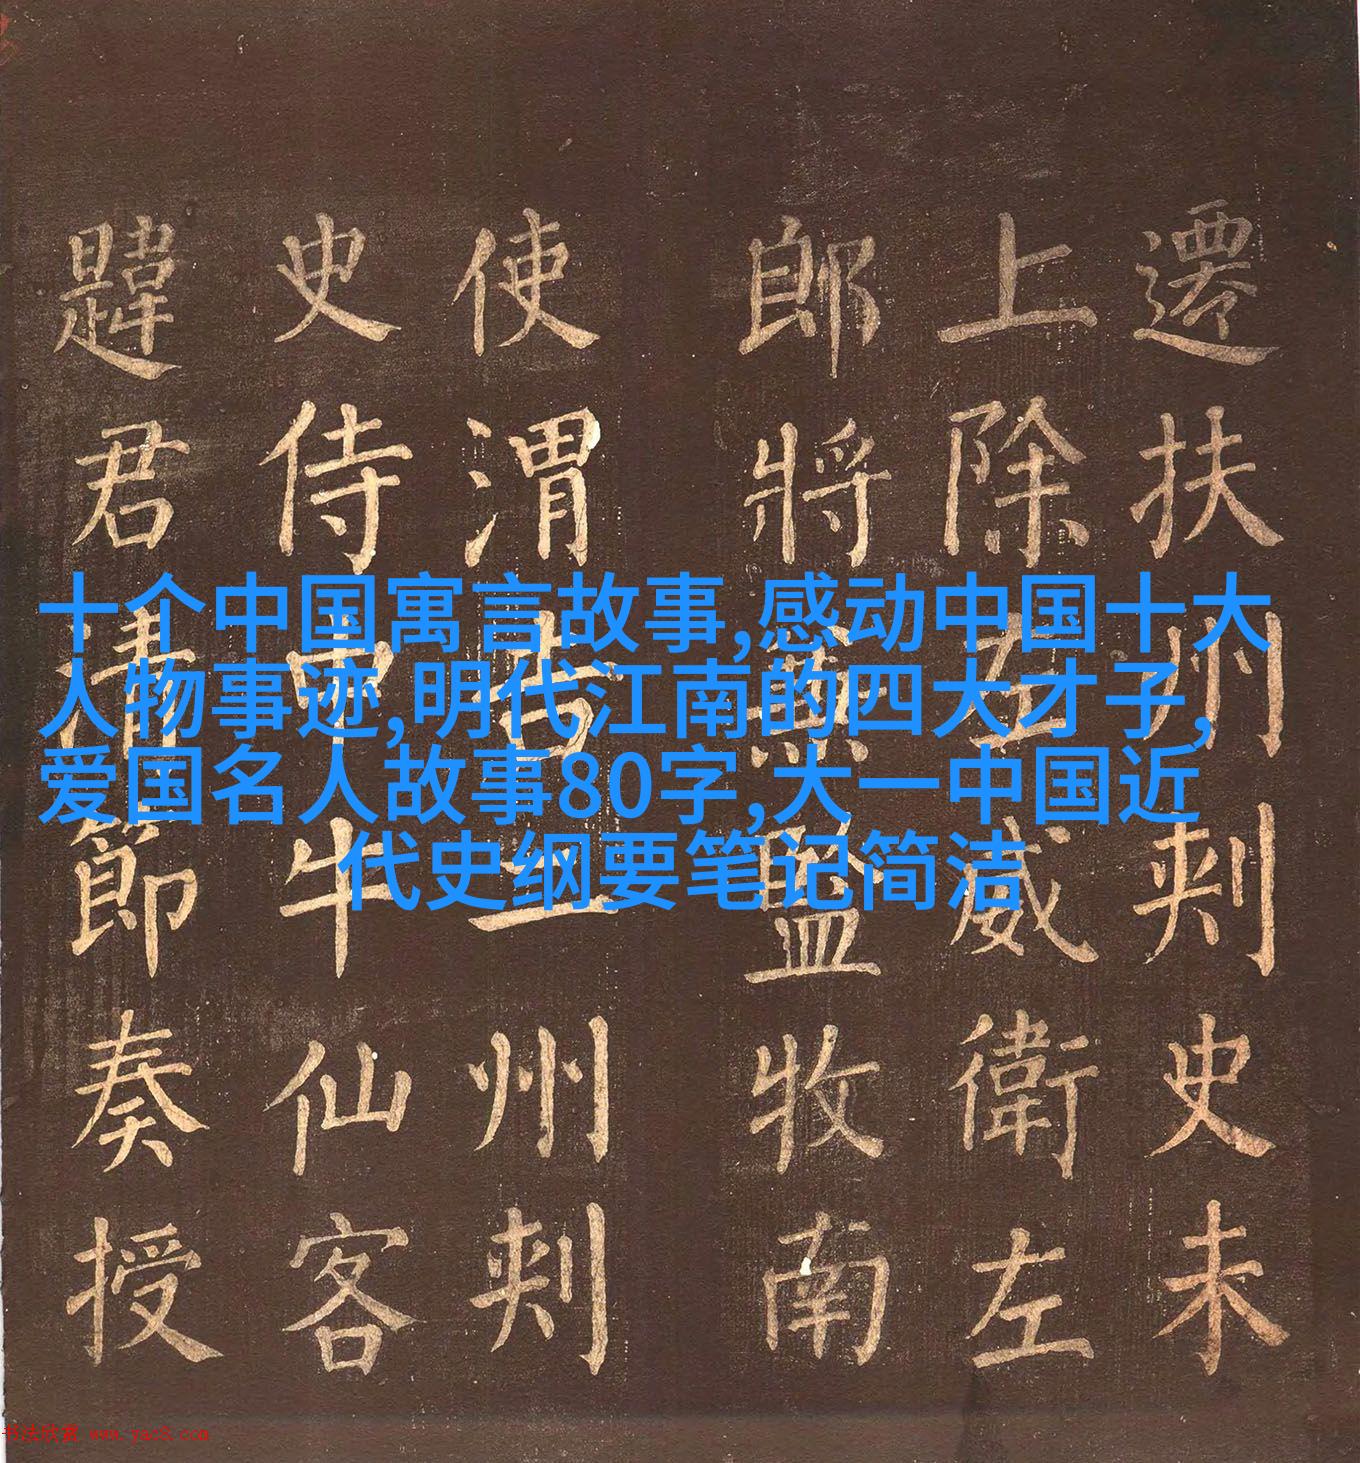 遷扶州刾史未
上除左威衛左
郎將兼監牧南
使渭吉二州刾
史侍中牛仙客
韙君清節奏授
十个中国寓言故事,感动中国十大
人物事迹,明代江南的四大才子,
爱国名人故事80字,大一中国近
代史纲要笔记简洁
书法欣赏 www.yac8.com